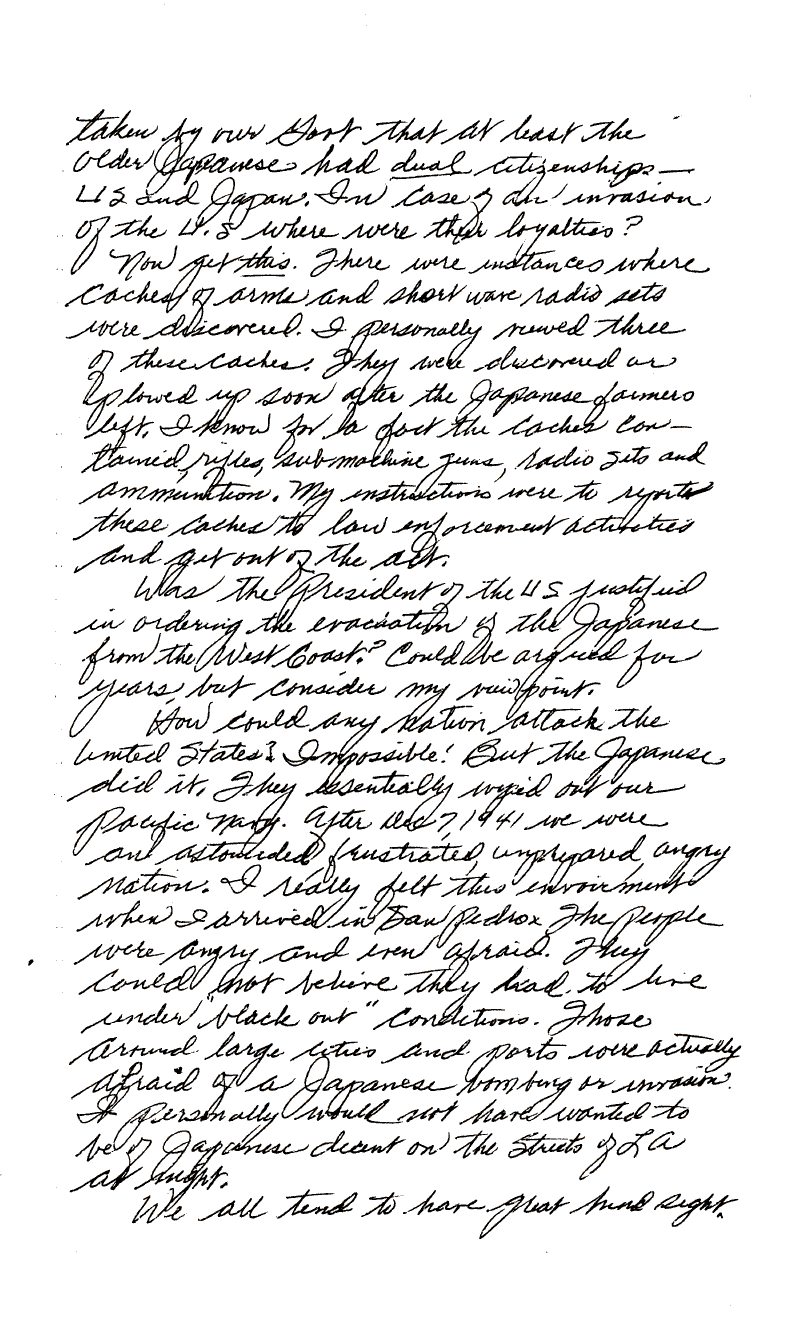 taken by our Govt that at least the
older Japanese had dual citizenships—
US and Japan. In case of an invasion
of the U.S where were their loyalties?
Now get this. There were instances where
caches of arms and short wave radio sets
were discovered. I personally viewed three
of these caches. They were discovered or
plowed up soon after the Japanese farmers
left. I know for a fact the caches con-
tained, rifles, sub-machine guns, radio sets and
ammunition. My instructions were to report
these caches to law enforcement activities
and get out of the act.
Was the President of the US justified
in ordering the evacuation of the Japanese
from the West Coast? Could be argued for
years but consider my viewpoint.
How could any nation attack the
United States? Impossible! But the Japanese
did it. They essentially wiped out our
Pacific Navy. After Dec 7, 1941 we were
an astounded, frustrated, unprepared, angry
nation. I really felt this enviorment
when I arrived in San Pedro. The people
were angry and even afraid. They
could not believe they had to live
under "black out" conditions. Those
around large cities and ports were actually
afraid of a Japanese bombing or invasion.
I personally would not have wanted to
be of Japanese decent on the Streets of LA
at night.
We all tend to have great hind sight.